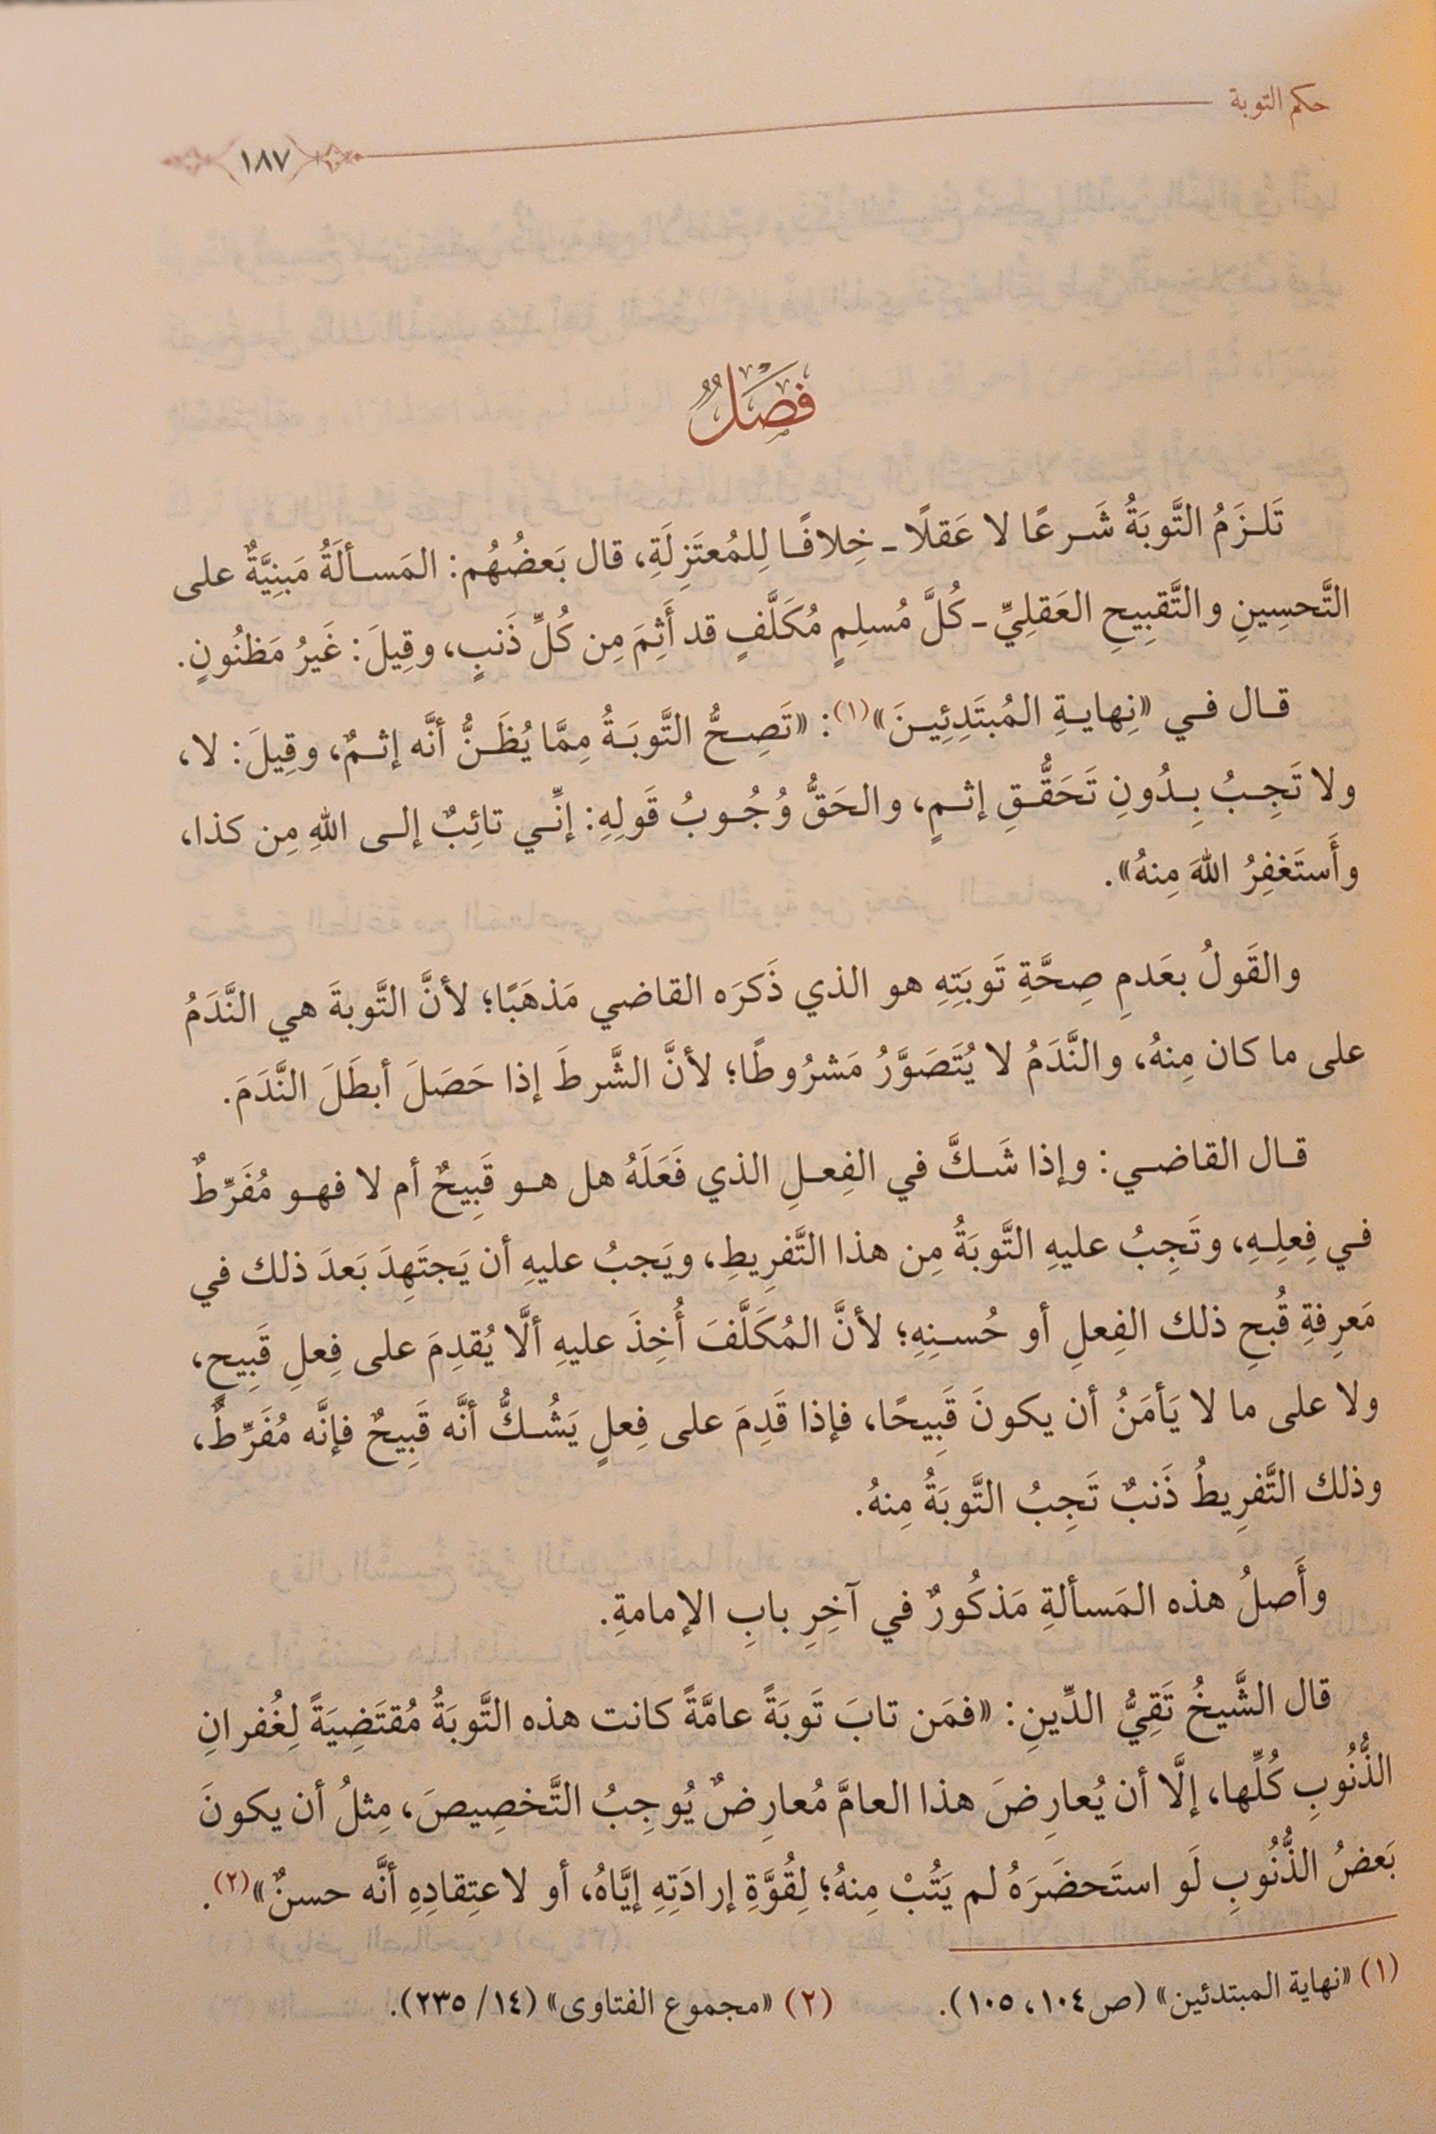 حكم التوبة
١٨٧
فَصْلٌ
تَلـزَمُ التَّوبَةُ شَـرعًا لا عَقلًا ـ خِلافًـا لِلمُعتَزِلَةِ، قال بَعضُهُم: المَسـألَةُ مَبنِيَّةٌ على
التَّحسِينِ والتَّقبِيحِ العَقلِيِّ ـ كُلَّ مُسلِمٍ مُكَلَّفٍ قد أَثِمَ مِن كُلِّ ذَنبٍ، وقِيلَ: غَيرُ مَظنُونٍ.
قـال فـي «نِهايـةِ المُبتَدِئِيـنَ»(١): «تَصِـحُّ التَّوبَـةُ مِمَّا يُظَـنُّ أنَّه إثـمٌ، وقِيلَ: لا،
ولا تَجِـبُ بِـدُونِ تَحَقُّـقِ إثـمٍ، والحَقُّ وُجُـوبُ قَولِهِ: إنِّـي تائِبٌ إلـى اللهِ مِن كذا،
وأَستَغفِرُ اللهَ مِنهُ».
والقَولُ بعَدمِ صِحَّةِ تَوبَتِهِ هو الذي ذَكرَه القاضي مَذهَبًا؛ لأنَّ التَّوبةَ هي النَّدَمُ
على ما كان مِنهُ، والنَّدَمُ لا يُتَصَوَّرُ مَشرُوطًا؛ لأنَّ الشَّرطَ إذا حَصَلَ أبطَلَ النَّدَمَ.
قـال القاضـي: وإذا شَـكَّ في الفِعـلِ الذي فَعَلَهُ هل هـو قَبِيحٌ أم لا فهـو مُفَرِّطٌ
فـي فِعلِـهِ، وتَجِبُ عليهِ التَّوبَةُ مِن هذا التَّفرِيطِ، ويَجبُ عليهِ أن يَجتَهِدَ بَعدَ ذلك في
مَعرِفةِ قُبحِ ذلك الفِعلِ أو حُسـنِهِ؛ لأنَّ المُكَلَّفَ أُخِذَ عليهِ ألَّا يُقدِمَ على فِعلِ قَبِيحٍ،
ولا على ما لا يَأمَنُ أن يكونَ قَبِيحًا، فإذا قَدِمَ على فِعلٍ يَشُـكُّ أنَّه قَبِيحٌ فإنَّه مُفَرِّطٌ،
وذلك التَّفرِيطُ ذَنبٌ تَجِبُ التَّوبَةُ مِنهُ.
وأَصلُ هذه المَسألةِ مَذكُورٌ في آخِرِ بابِ الإمامةِ.
قال الشَّيخُ تَقِيُّ الدِّينِ: «فمَن تابَ تَوبَةً عامَّةً كانت هذه التَّوبَةُ مُقتَضِيَةً لِغُفرانِ
الذُّنُوبِ كُلِّها، إلَّا أن يُعارِضَ هذا العامَّ مُعارِضٌ يُوجِبُ التَّخصِيصَ، مِثلُ أن يكونَ
بَعضُ الذُّنُوبِ لَو استَحضَرَهُ لم يَتُبْ مِنهُ؛ لِقُوَّةِ إرادَتِهِ إيَّاهُ، أو لاعتِقادِهِ أنَّه حسنٌ»(٢).
(١) «نهاية المبتدئين» (ص١٠٤، ١٠٥). (٢) «مجموع الفتاوى» (١٤/ ٢٣٥).